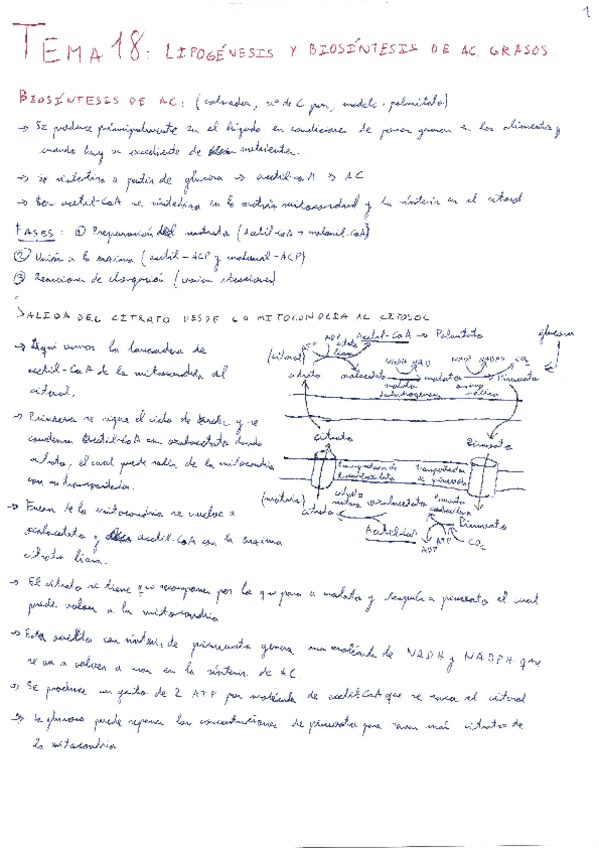 1
TEMA 18: LIPOGÉNESIS Y BIOSÍNTESIS DE AC. GRASOS.
BIOSÍNTESIS DE AC: (saturados, nº de C par, modelo - palmitato)
→ Se produce principalmente en el hígado en condiciones de
cuando hay un excedente de nutrientes.
→ Se sintetiza a partir de glucosa → acetil-coA → AC
→ acetil-CoA se sintetiza en la matriz mitocondrial y la síntesis en el citosol
FASES: ① Preparación del sustrato (acetil-coA + malonil-CoA)
② Unión a la enzima (acetil-ACP y malonil-ACP)
③ Reacciones de elongación (varias reacciones)
SALIDA DEL CITRATO DESDE LA MITOCONDRIA AL CITOSOL
→ Aquí vemos la lanzadera de
acetil-CoA de la mitocondria al
citosol.
→ Primero se sigue el ciclo de Krebs y se
condensa Acetil-CoA con oxalacetato dando
citrato, el cual puede salir de la mitocondria
con su transportador.
→ Fuera de la mitocondria se vuelve a
oxalacetato y acetil-CoA con la enzima
citrato liasa.
→ El citrato se tiene que recomponer por lo que pasa a malato y después a piruvato el cual
puede volver a la mitocondria
→ Esta vuelta con síntesis de piruvato genera una molécula de NADH y NADPH que
se va a volver a usar en la síntesis de AC.
→ Se produce un gasto de 2 ATP por molécula de acetil-CoA que se saca al citosol
→ La glucosa puede reponer las concentraciones de piruvato para sacar más citrato de
la mitocondria
ADP Acetil-CoA → Palmitato
glucosa
(citosol) citrato liasa
NADH NAD NADP NADPH CO₂
citrato oxalacetato malato Piruvato
malato deshidrogenasa
citrato Piruvato
Transportador de Transportador de piruvato
(matriz) citrato oxalacetato Piruvato
citrato Piruvato
Acetil-CoA
ATP CO₂
ADP